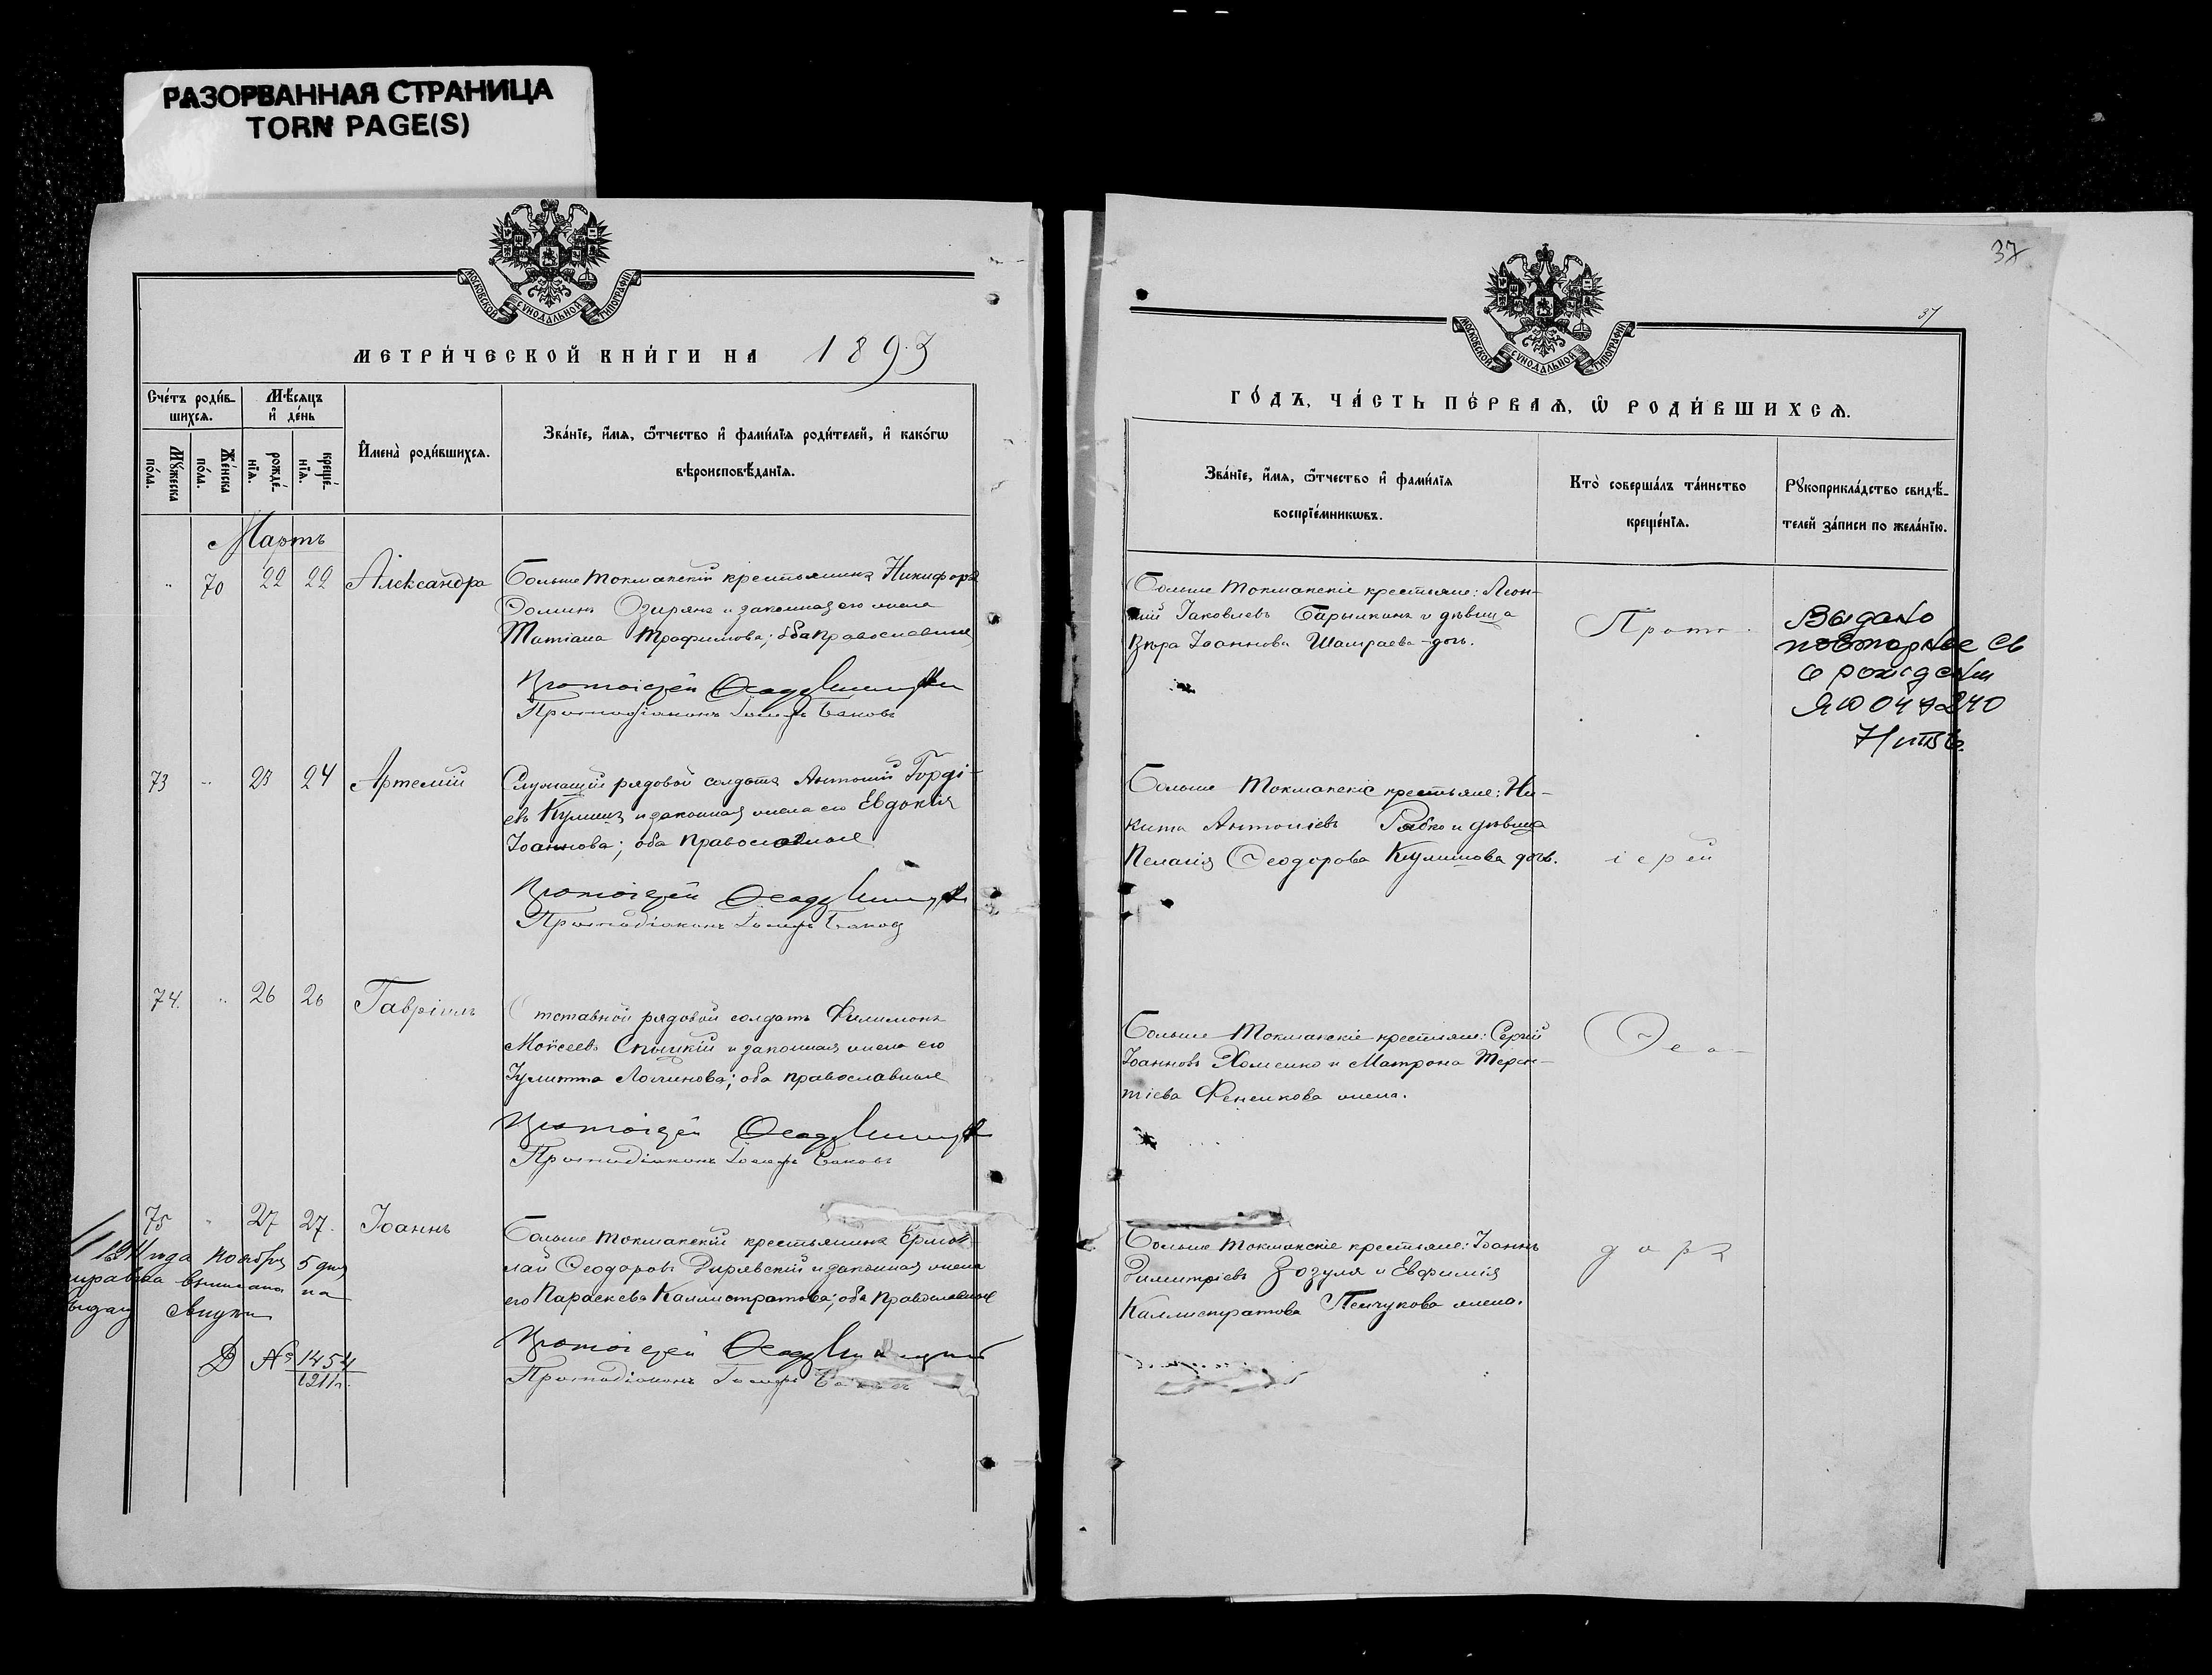 РАЗОРВАННАЯ СТРАНИЦА
TORN PAGE(S)
МОСКОВСКОЙ СѴНОДАЛЬНОЙ ТИПОГРАФІИ
МЕТРИ́ЧЕСКОЙ КНИ́ГИ НА 1893
Сче́тъ роди́в-
шихся.
Мѣ́сяцъ
и҆ де́нь
Мꙋ́жеска
по́ла.
Же́нска
по́ла.
рожде́-
нїя.
креще́-
нїя.
И҆мена̀ роди́вшихся.
Зва́нїе, и҆́мя, ѻ҆́тчество и҆ фами́лїя роди́телей, и҆ како́гѡ
вѣроисповѣ́данїя.
Мартъ
" 70 22 22 Александра
Больше Токмакскій крестьянинъ Никифоръ
Домин Озирянъ и законная его жена
Татіана Трофимова; оба православные
Протоіерей
Протодіаконъ Іосифъ Баковъ
73 " 23 24 Артемій
Служащій рядовой солдатъ Антоній Горді-
евъ Кулишъ и законная жена его Евдокія
Іоаннова; оба православные
Протоіерей
Протодіаконъ Іосифъ Баковъ
74. " 26 26 Гавріилъ
Отставной рядовой солдатъ Филимонъ
Моѵсеевъ и законная жена его
Іулитта Логинова; оба православные
Протоіерей
Протодіаконъ Іосифъ Баковъ
75 " 27 27. Іоаннъ
Больше Токмакскій крестьянинъ Ермо-
лай Ѳеодоровъ Дирявскій и законная жена
его Параскева Каллистратова; оба православные
Протоіерей
Протодіаконъ Іосифъ Баковъ
года ноября 5 дня
выписана на
№ 1454
1911г.
37
37
МОСКОВСКОЙ СѴНОДАЛЬНОЙ ТИПОГРАФІИ
ГО́ДЪ, ЧА́СТЬ ПЕ́РВАѦ, Ѡ҆ РОДИ́ВШИХСѦ.
Зва́нїе, и҆́мя, ѻ҆́тчество и҆ фами́лїя
воспрїе́мникѡвъ.
Кто̀ соверша́лъ та́инство
креще́нїя.
Рꙋкоприкла́дство свидѣ́-
телей за́писи по жела́нїю.
Больше Токмакскіе крестьяне: Леон-
тій Іаковлевъ Барылкинъ и дѣвица
Вѣра Іоаннова Шамраева дочь.
Прото-
Выдано
повторное св
о рожден
Больше Токмакскіе крестьяне: Ни-
кита Антоніевъ Рябко и дѣвица
Пелагія Ѳеодорова Кулишова дочь.
іерей
Больше Токмакскіе крестьяне: Сергій
Іоанновъ Хоменко и Матрона Терен-
тіева Фененкова жена.
Ѳео-
Больше Токмакскіе крестьяне: Іоаннъ
Димитріевъ Зозуля и Евфимія
Каллистратова Пенчукова жена.
доръ